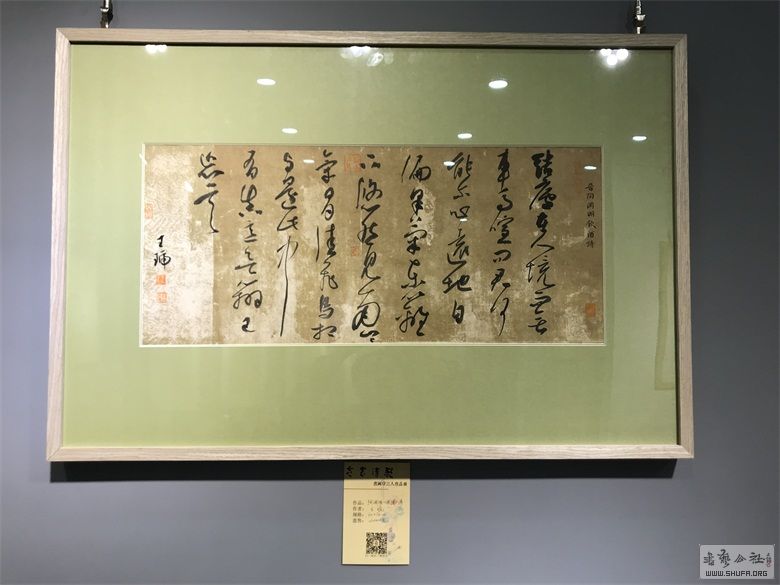 晉陶淵明飲酒詩
結廬在人境而無
車馬喧問君何
能爾心遠地自
偏采菊東籬
下悠然見南山
氣日夕佳飛鳥相
與還此中
有真意欲辨已
忘言
王
作品：
作者：
规格：
書藝公社
WWW.SHUFA.ORG